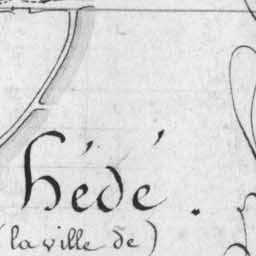 hédé.
(la ville de)